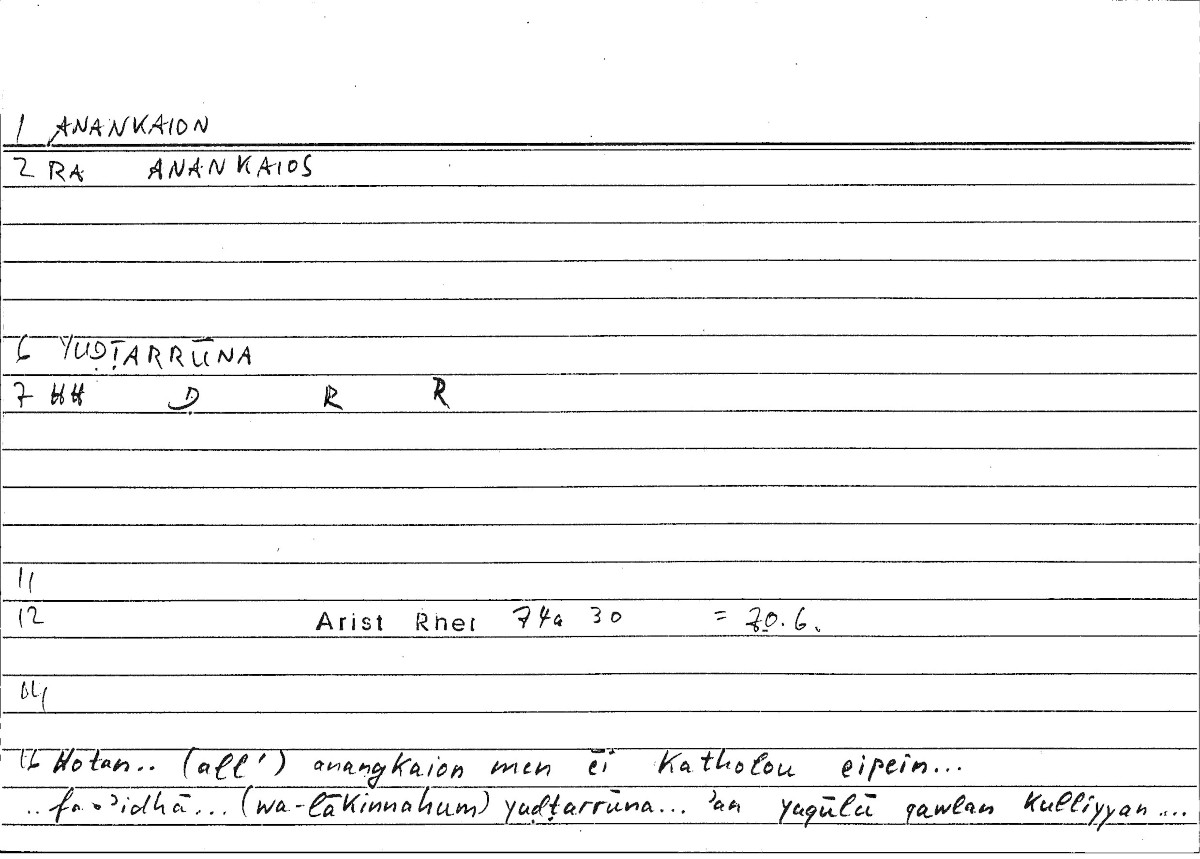 1 ANANKAION
2 RA ANANKAIOS
6 YUḌṬARRŪNA
7 HH Ḍ R R
11
12 Arist Rhet 74a 30 = 70.6.
14
16 Hotan.. (all') anangkaion men ēi Katholou eipein...
.. fa-'idhā... (wa-lākinnahum) yuḍṭarrūna... 'an yaqūlū qawlan Kulliyyan....